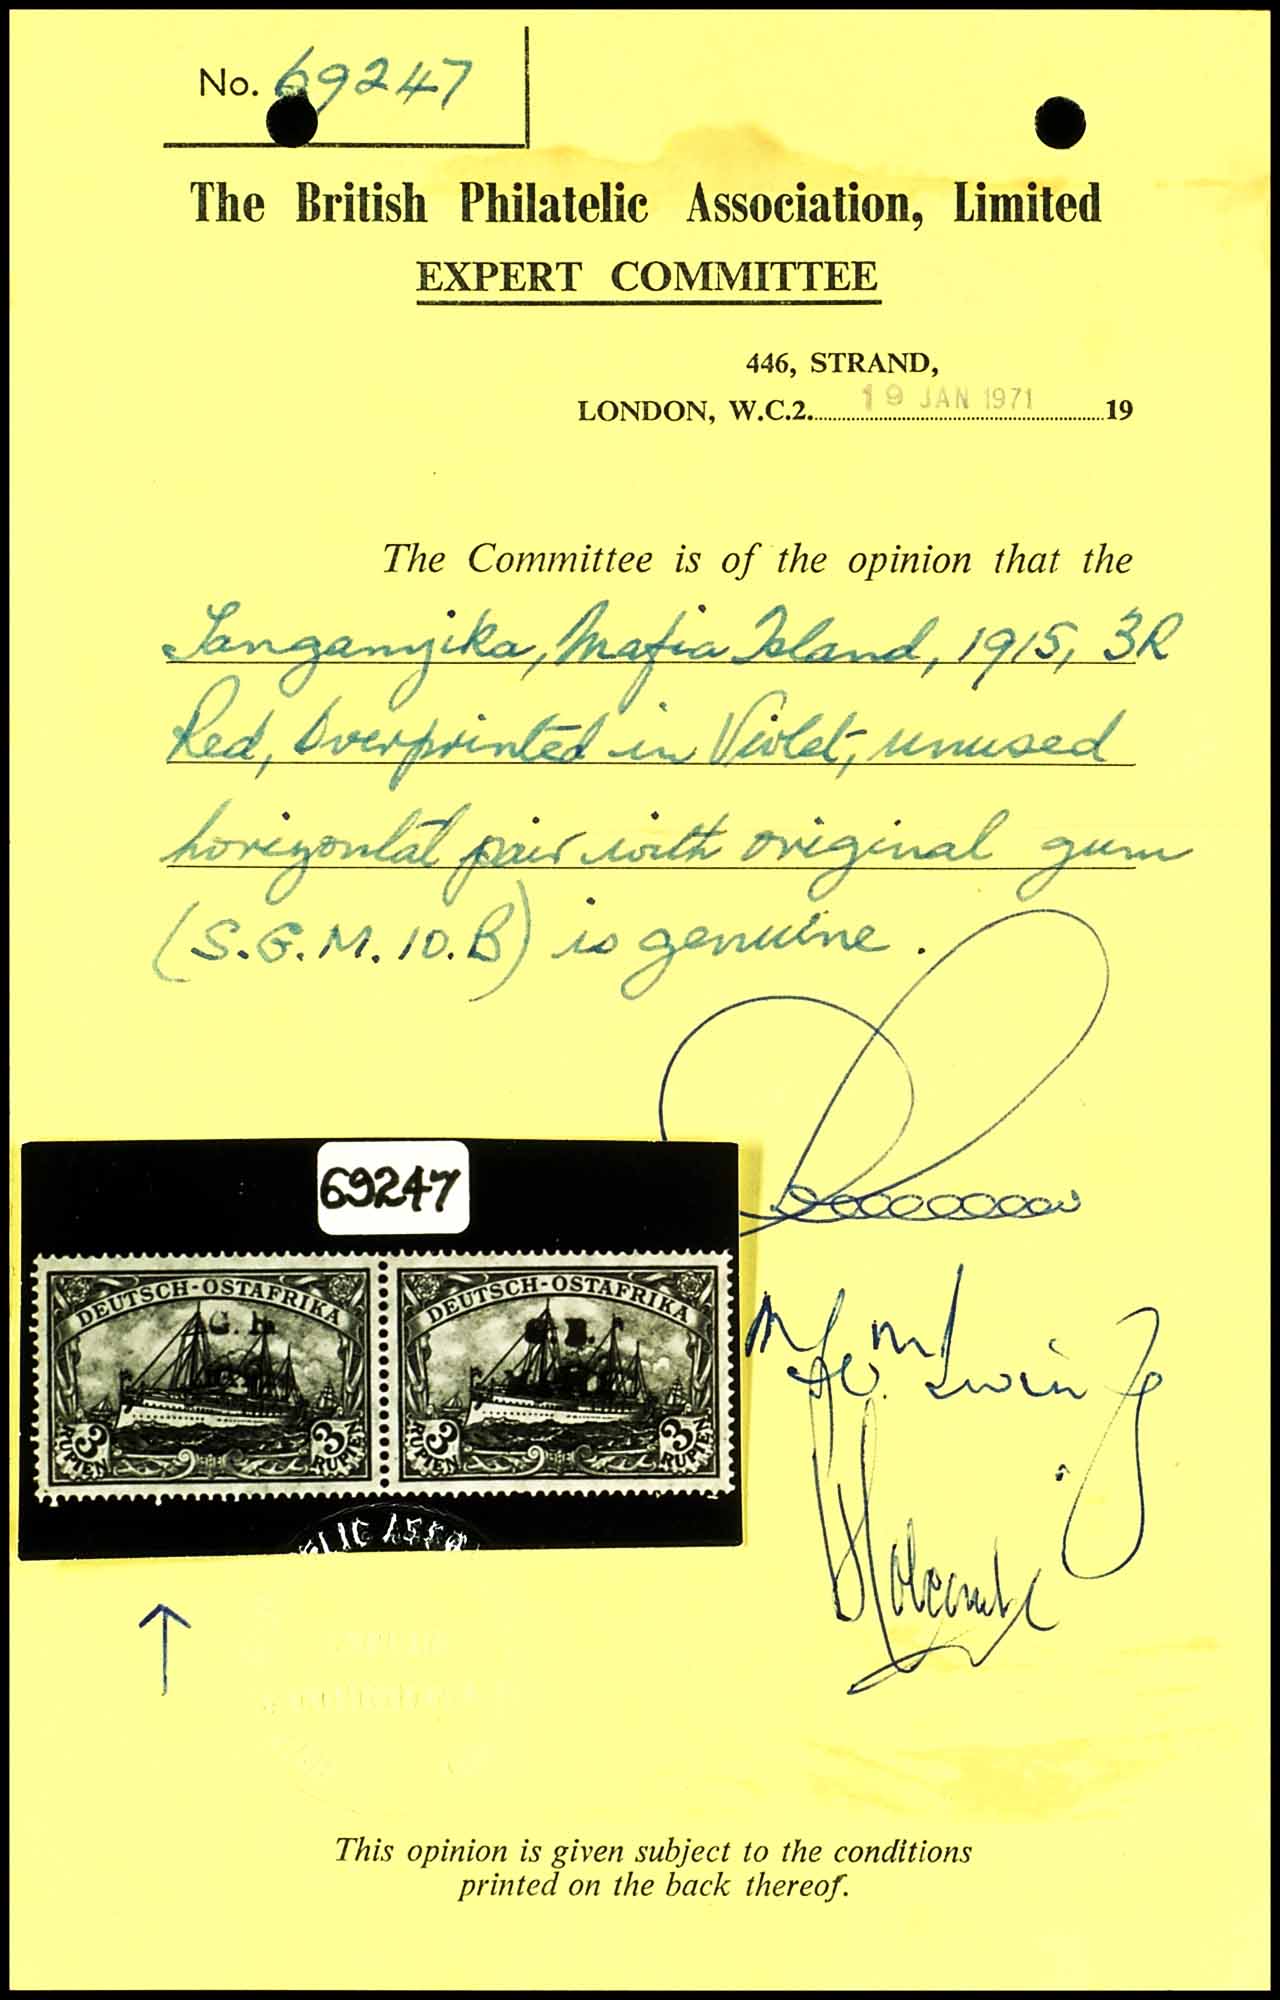 No. 69247
The British Philatelic Association, Limited
EXPERT COMMITTEE
446, STRAND,
LONDON, W.C.2. 19 JAN 1971 19
The Committee is of the opinion that the
Tanganyika, Mafia Island, 1915, 3R
Red, Overprinted in Violet, unused
horizontal pair with original gum
(S.G.M.10.B) is genuine.
69247
DEUTSCH-OSTAFRIKA DEUTSCH-OSTAFRIKA
G.
3 RUPIEN 3 RUPIEN 3 RUPIEN 3 RUPIEN
Holcombe
This opinion is given subject to the conditions
printed on the back thereof.